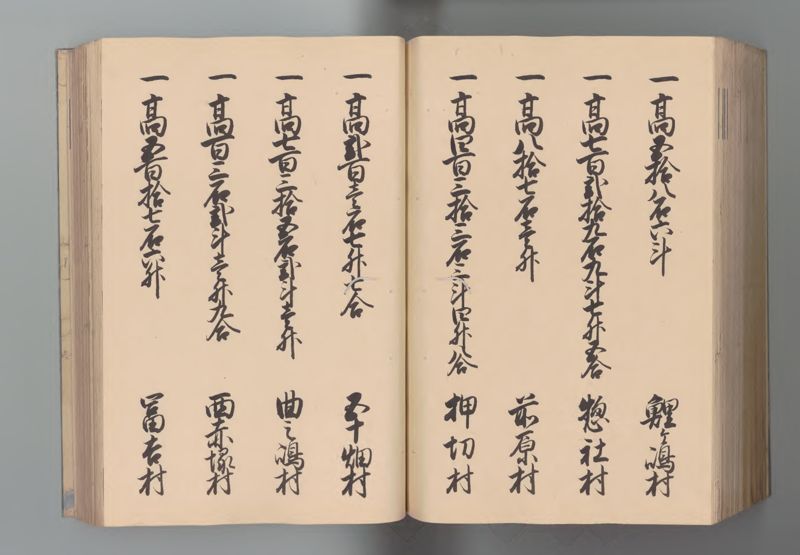 一 高五拾八石六斗 鯉ヶ嶋村
一 高七百弐拾九石九斗七升五合 惣社村
一 高八拾七石壱升 前原村
一 高四百三拾三石三斗四升八合 押切村
一 高弐百壱石七升七合 五十畑村
一 高七百三拾五石弐斗壱升 曲之嶋村
一 高百三石弐斗壱升九合 西赤塚村
一 高五百拾七石六升 冨吉村